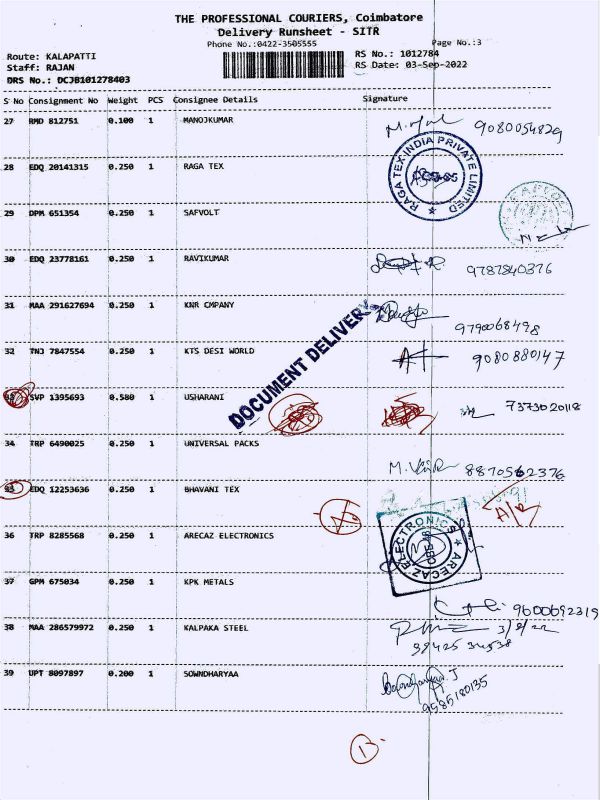 THE PROFESSIONAL COURIERS, Coimbatore
Delivery Runsheet - SITR
Phone No.:0422-3505555 Page No.:3
Route: KALAPATTI RS No.: 1012784
Staff: RAJAN RS Date: 03-Sep-2022
DRS No.: DCJB101278403
S No Consignment No Weight PCS Consignee Details Signature
27 RMD 812751 0.100 1 MANOJKUMAR 9080054829
28 EDQ 20141315 0.250 1 RAGA TEX
RAGA TEX INDIA PRIVATE LIMITED
29 DPM 651354 0.250 1 SAFVOLT
30 EDQ 23778161 0.250 1 RAVIKUMAR 9787840376
31 MAA 291627694 0.250 1 KNR CMPANY 9790068498
32 TNJ 7847554 0.250 1 KTS DESI WORLD 9080880147
DOCUMENT DELIVERY
SVP 1395693 0.580 1 USHARANI 7373020118
34 TRP 6490025 0.250 1 UNIVERSAL PACKS 8870562376
35 EDQ 12253636 0.250 1 BHAVANI TEX
A/R
36 TRP 8285568 0.250 1 ARECAZ ELECTRONICS
ARECAZ ELECTRONICS
37 GPM 675034 0.250 1 KPK METALS 9600692319
38 MAA 286579972 0.250 1 KALPAKA STEEL 3/9/22
99425 34538
39 UPT 8097897 0.200 1 SOWNDHARYAA
9585180135
13